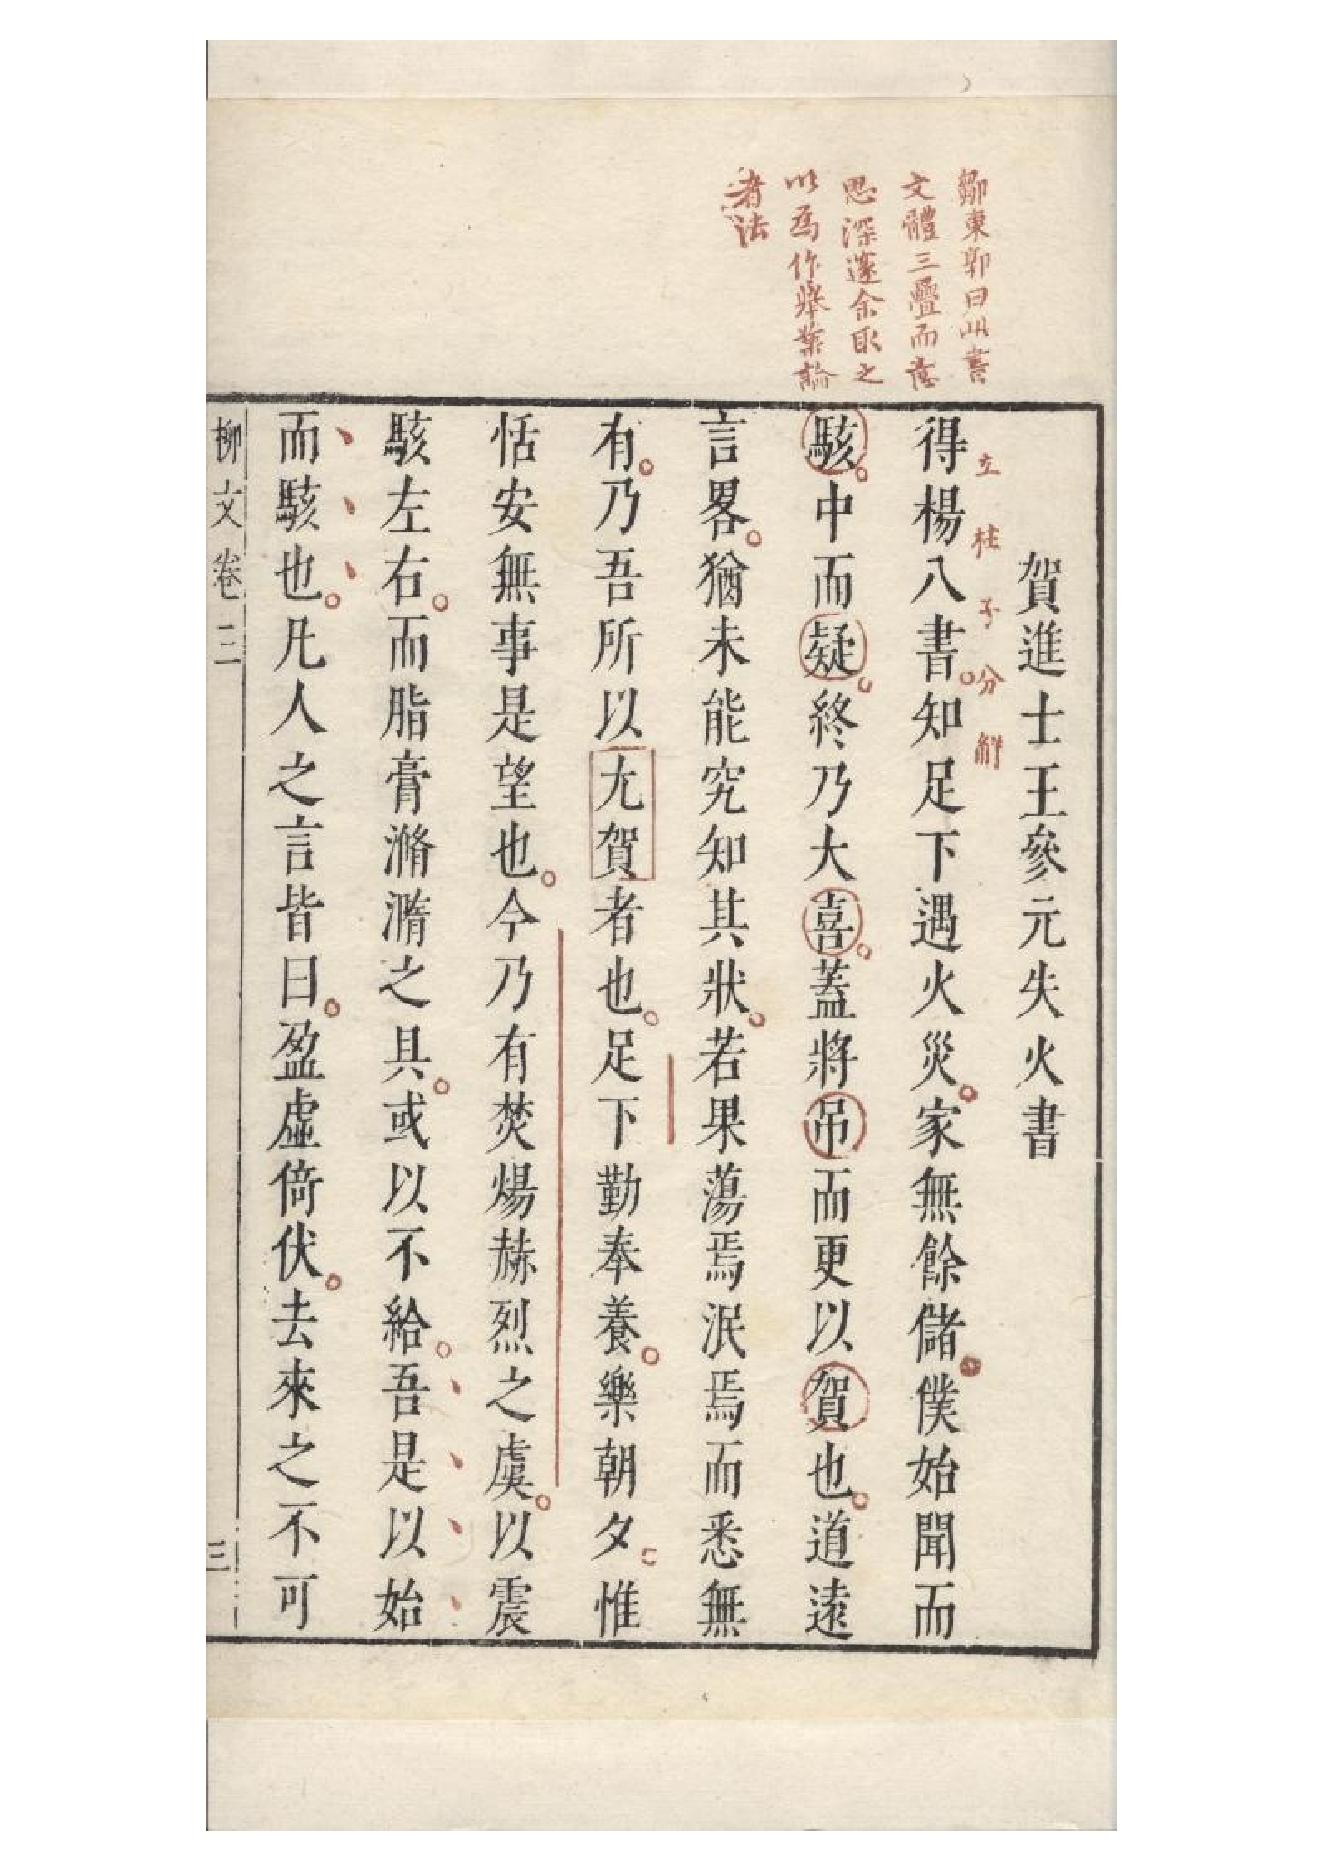 鄒東郭曰此書
文體三疊而意
思深邃余取之
以為作舉業論
者法
賀進士王參元失火書
立柱子分解
得楊八書知足下遇火災家無餘儲僕始聞而
駭中而疑終乃大喜蓋將吊而更以賀也道遠
言畧猶未能究知其狀若果蕩焉泯焉而悉無
有乃吾所以尤賀者也足下勤奉養樂朝夕惟
恬安無事是望也今乃有焚煬赫烈之虞以震
駭左右而脂膏滫瀡之具或以不給吾是以始
而駭也凡人之言皆曰盈虛倚伏去來之不可
柳文卷三
三